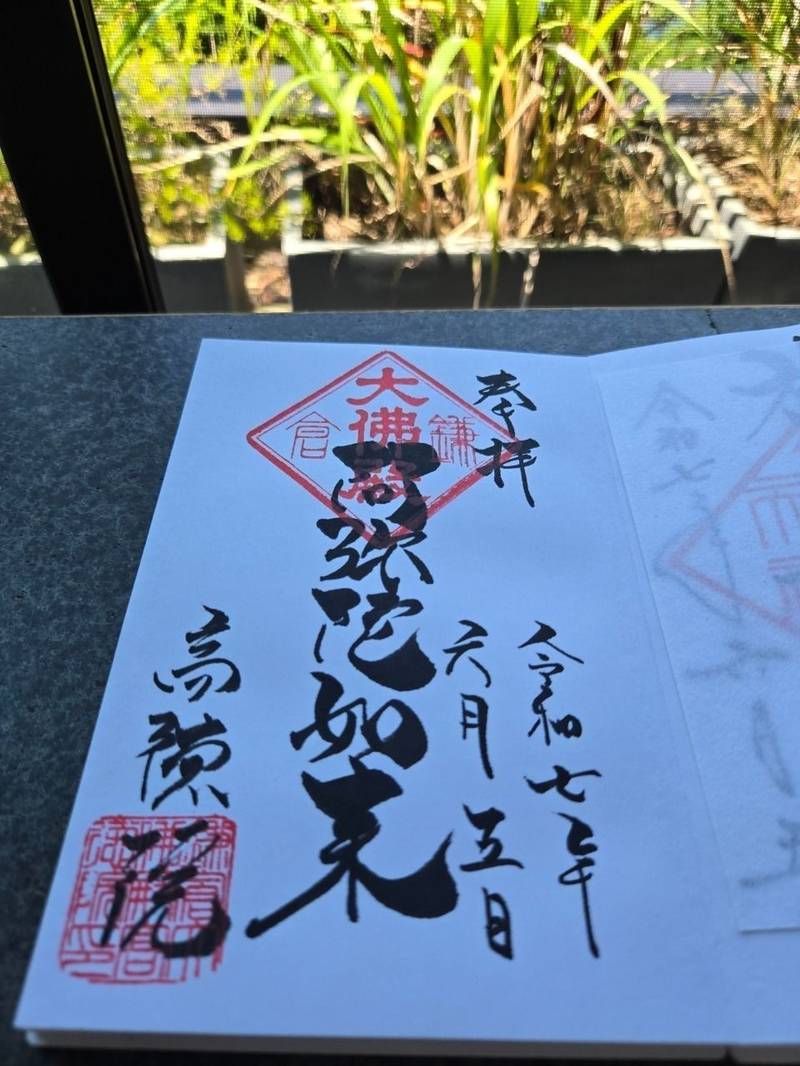 奉拝
令和七年
六月五日
鎌倉
大佛殿
阿弥陀如来
高徳院